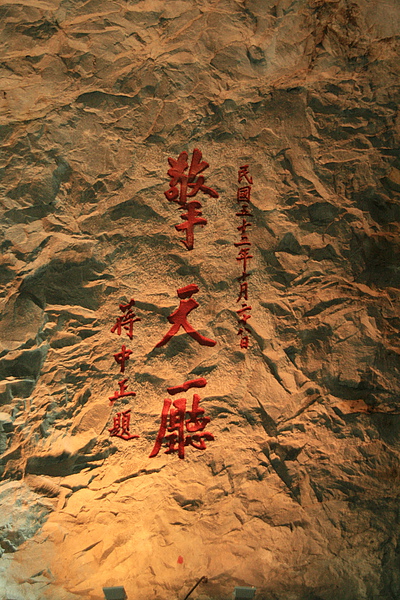 民國五十二年十月日
擎天廳
蔣中正題